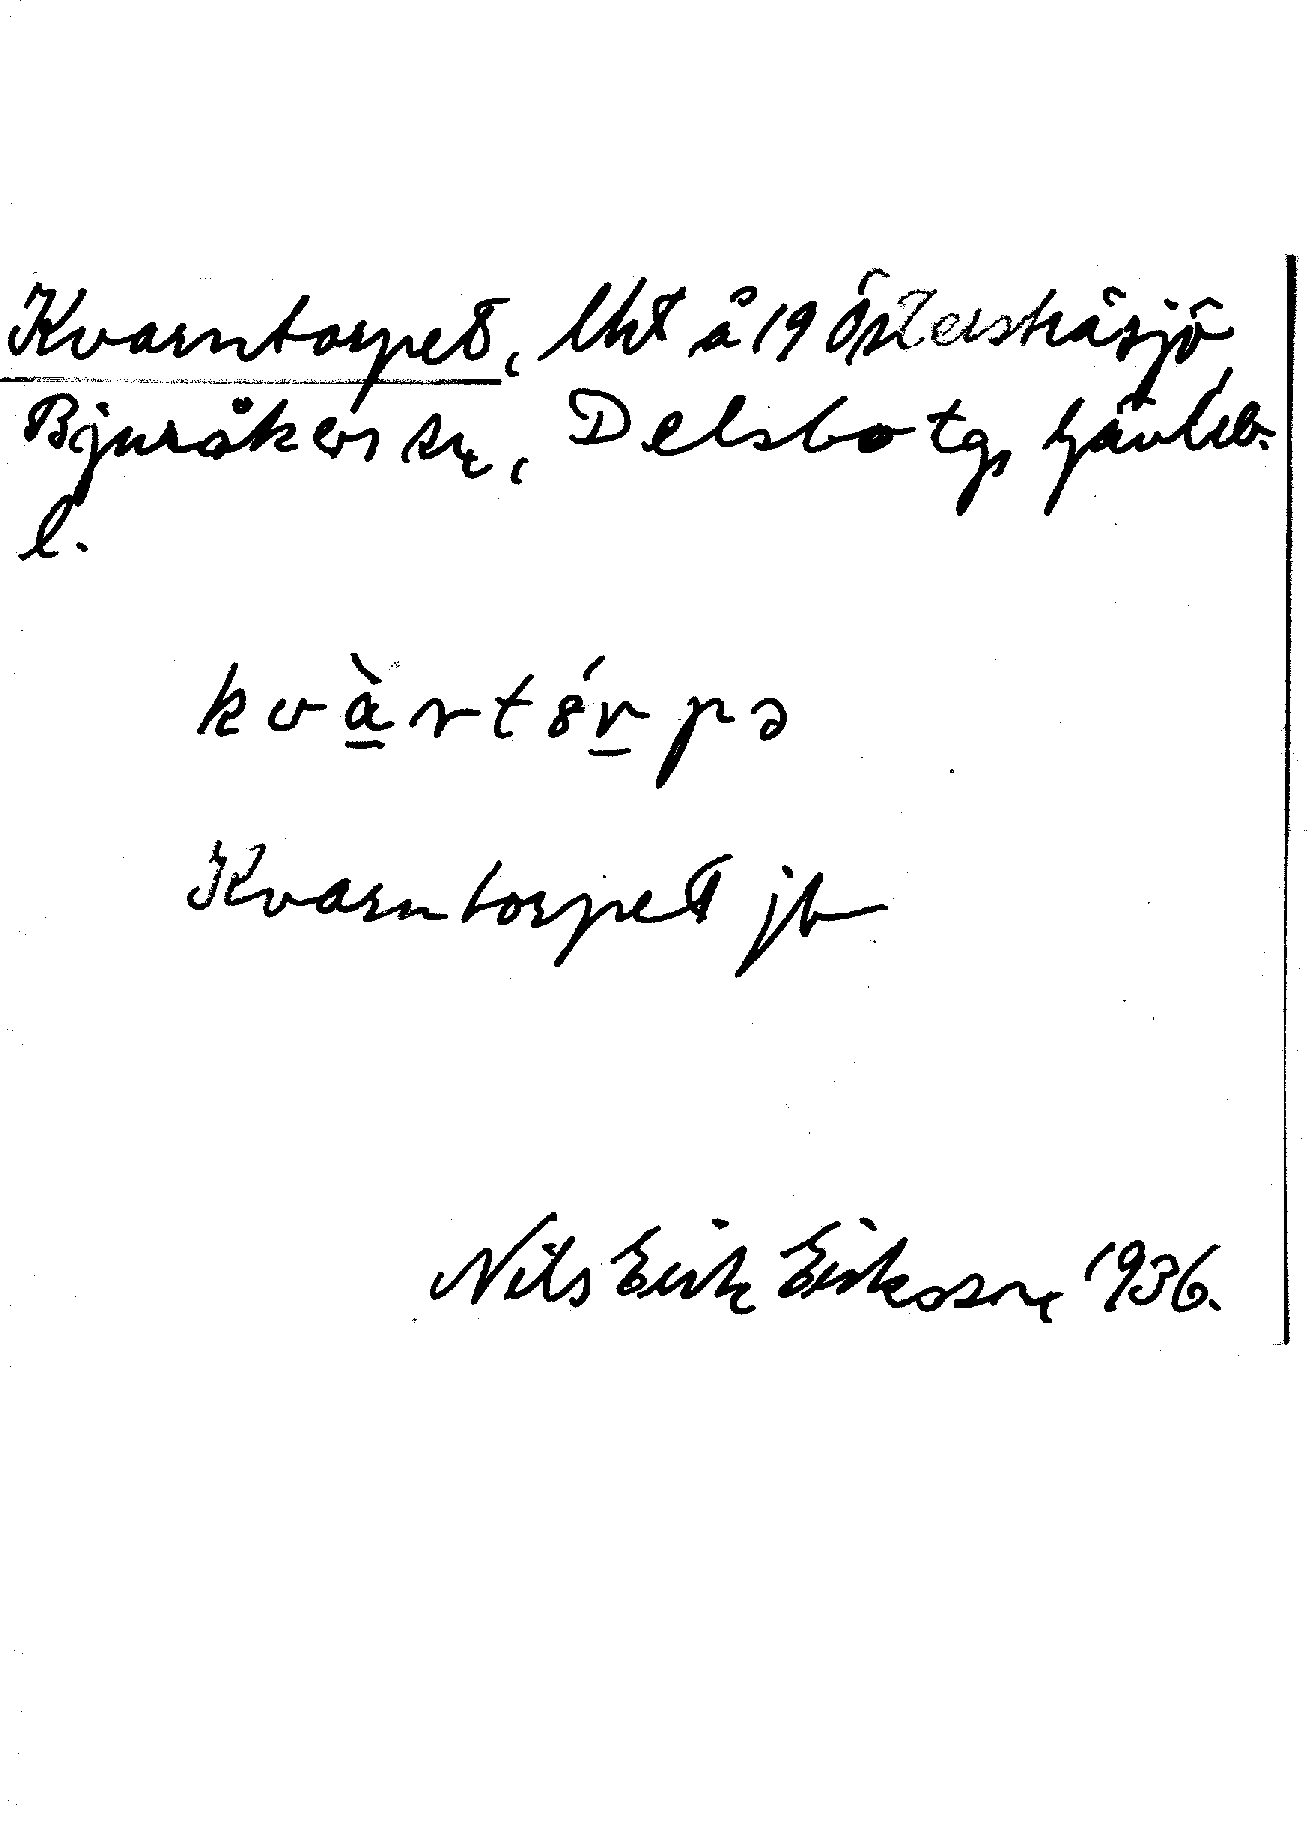 Kvarntorpet, lht å 19 Österskåsjö
Bjuråkers sn, Delsbo tg, Gävleb.
l.
kvàrtórpə
Kvarntorpet jb
Nils Erik Eriksson, 1936.